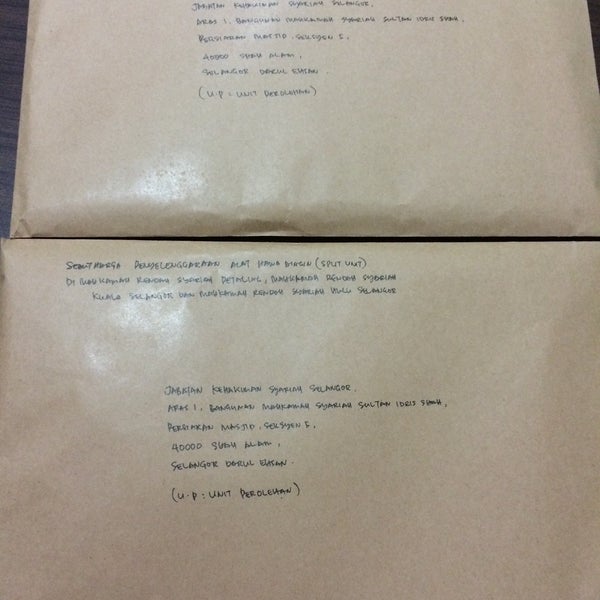 JABATAN KEHAKIMAN SYARIAH SELANGOR,
ARAS 1, BANGUNAN MAHKAMAH SYARIAH SULTAN IDRIS SHAH,
PERSIARAN MASJID, SEKSYEN 5,
40000 SHAH ALAM,
SELANGOR DARUL EHSAN.
(U.P : UNIT PEROLEHAN)
SEBUTHARGA PENYELENGGARAAN ALAT HAWA DINGIN (SPLIT UNIT)
DI MAHKAMAH RENDAH SYARIAH PETALING, MAHKAMAH RENDAH SYARIAH
KUALA SELANGOR DAN MAHKAMAH RENDAH SYARIAH HULU SELANGOR
JABATAN KEHAKIMAN SYARIAH SELANGOR,
ARAS 1, BANGUNAN MAHKAMAH SYARIAH SULTAN IDRIS SHAH,
PERSIARAN MASJID, SEKSYEN 5,
40000 SHAH ALAM,
SELANGOR DARUL EHSAN.
(U.P : UNIT PEROLEHAN)